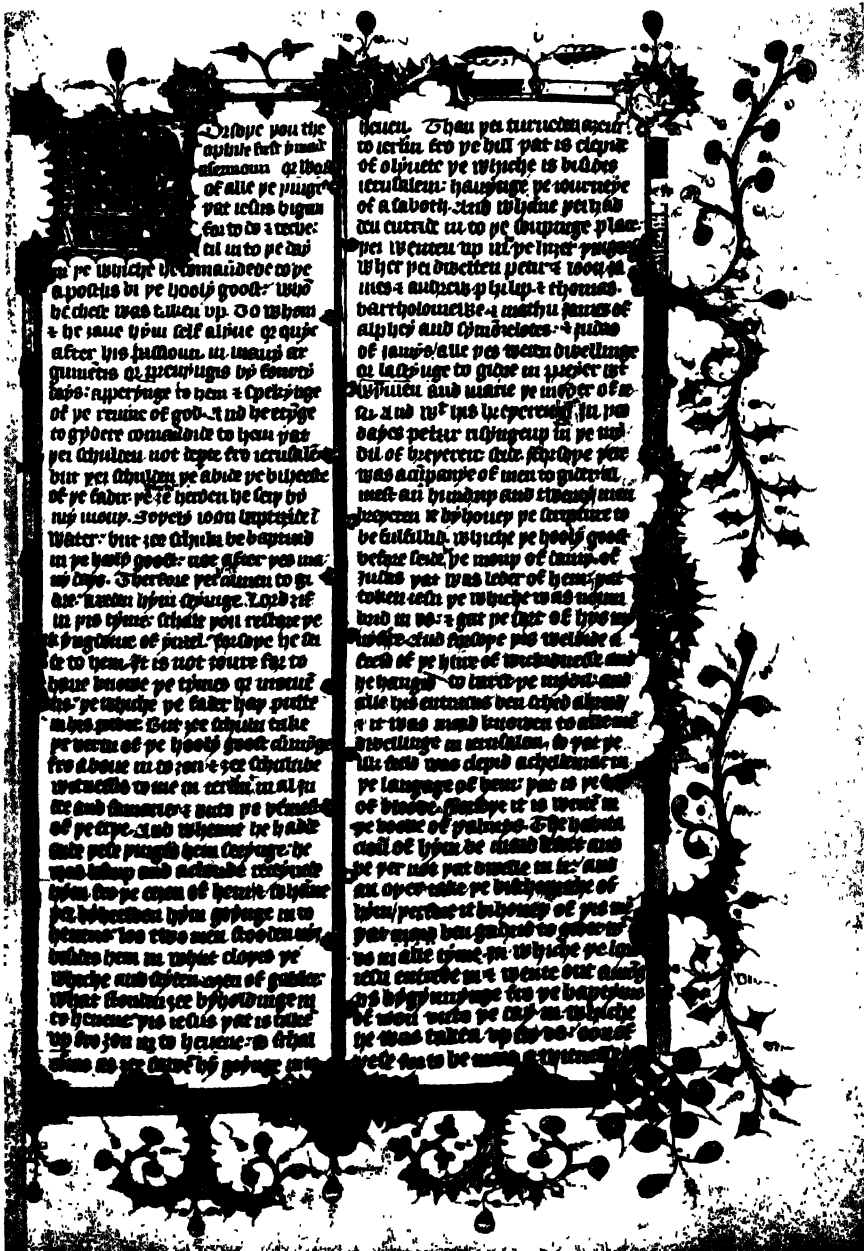 Forsoþe þou the
ophile first I maad
a sermoun or word
of alle þe þingis
þat iesus bigan
for to do & teche:
til in to þe day
in þe whiche he comaundede to þe
apostlis bi þe hooly goost: who
he chese was taken vp. To whom
& he gaue hym self alyue or quyc
after his passioun. in many ar
gumetis or preuyngis by fourty
days: apperynge to hem & spekynge
of þe reume of god. And he etynge
to gydere comaudide to hem þat
þei schulden not depte fro ierusale
but þei schulden þe abide þe biheeste
of þe fader þe ȝe herden he seiþ by
my mouþ. Soþely ioon baptiside i
water: but ȝee schuln be baptisid
in þe hooly goost: not after þes ma
ny days. Therfore þei camen to gi
dre. axeden hym seyinge. Lord ȝif
in þis tyme: schalt þou restore þe
kyngdome of israel. forsoþe he sei
de to hem. It is not ȝoure for to
haue knowe þe tymes or momet
is: þe whiche þe fader haþ putte
in his power. But ȝee schuln take
þe vertu of þe hooly goost comynge
fro aboue in to ȝou & ȝee schuln be
witnessis to me in ierlm. in al ju
dee and samarie & vnto þe vtmest
of þe erþe. And whanne he hadde
seide þese þingis hem seeynge: he
was lift up and a cloude receyuede
hym fro þe eyen of hem. & whane
þei byheelden hym goynge in to
heuene: loo two men stooden nyȝ
besides hem in white cloþes þe
whiche and seyden. men of galilee
what stonden ȝee byholdinge in
to heuene. þis iesus þat is take
vp fro ȝou in to heuene: so schal
come as ȝee sawe hy goynge in to
heuen. Than þei turneden aȝein
to ierlm fro þe hill þat is clepid
of olyuete þe whiche is bisides
ierusalem: hauynge þe iourneye
of a saboth. And whane þei had
den entrid in to þe soupynge place
þei wenten up in þe hiȝer þingis
wher þei dwelten petir & ioon ja
mes & andrew. philip & thomas.
bartholomewe & mathu james of
alphey and symo zelotes: & judas
of jamys/ alle þes weren dwellinge
or lastynge to gidre in preyer wt
wymen and marie þe moder of ie
su. and wt his breþeren. In þoo
dayes petur risynge up in þe myd
dil of breþeren: seide forsoþe þere
was a cumpanye of men to gidere al
mest an hundrip and twenty men
breþeren it byhoueþ þe scripture to
be fulfillid. whiche þe hooly goost
before seide þe mouþ of dauiþ. of
Judas þat was leder of hem: þat
token iesu þe whiche was noum
brid in vs: & gat þe sort of his my
nisterie. And forsoþe þis weldide a
feeld of þe hire of wickidnesse and
he hangid to barst þe myddil and
alle his entrails ben sched abrood
& it was maad knowen to alle men
dwellinge in ierusalem. so þat þe
ilk feeld was clepid achildemac in
þe langage of hem: þat is þe feeld
of blood. forsoþe it is writen in
þe book of psalmys. The habita
cioun of hym be maad desert and
be þer not þat dwelle in it: and
an oþer take þe bischopriche of
hym/ þerfore it bihoueþ of þis men
þat maad ben gadrid to gidere wt
vs in alle tyme. in whiche þe lord
iesu entride in & wente out among
vs bigynnynge fro þe baptym
of ioon vnto þe day in whiche
he was taken vp fro vs: oon of
þese for to be maad a witnesse